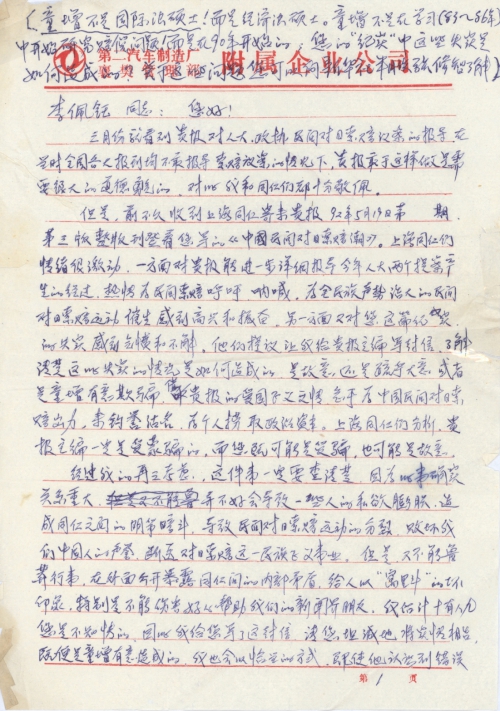 (童增不是国际法硕士！而是经济法硕士。童增不是在学习(83～86年)
中开始研究赔偿问题(而是在90年开始的)，您的"纪实"中这些失实是
如何造成的？
第二汽车制造厂
附属企业公司
李佩钰 同志： 您好！
三月份就看到贵报对人大、政协民间对日索赔议案的报导，在
当时全国各大报刊均不敢报导索赔议案的情况下，贵报敢于这样做是需
要很大的道德勇气的，对此我和同仁们都十分敬佩。
但是，前不久收到上海同仁寄来贵报92年5月19日第 期，
第三版整版刊登着您写的《中国民间对日索赔潮》。上海同仁们
情绪很激动，一方面对贵报能进一步详细报导今年人大两个提案产
生的经过，热情为民间索赔呼吁、呐喊，为全民族声势浩大的民间
对日索赔运动催生感到高兴和振奋，另一方面又对您这篇纪实
的失实感到气愤和不解。他们提议让我给贵报主编写封信，了解
清楚这些失实的情况是如何造成的，是故意，还是疏于大意，或者
是童增有意欺骗，借贵报的爱国主义之情，急于为中国民间对日索
赔出力，来钓誉沽名，为个人捞取政治资本。上海同仁们分析，贵
报主编一定是受蒙骗的，而您既可能是受骗，也可能是故意。
经过我的再三考虑，这件事一定要查清楚，因为此事确实
关系重大，弄不好会导致一些人的私欲膨胀，造
成同仁之间的明争暗斗，导致民间对日索赔运动的分裂，败坏我
们中国人的声誉，断送对日索赔这一民族正义事业。但是又不能鲁
莽行事，在外面公开暴露同仁间的内部矛盾，给人以"窝里斗"的坏
印象，特别是不能伤害好心帮助我们的新闻界朋友，我估计十有八九
您是不知情的，因此我给您写了这封信，请您坦诚地将实情相告，
既使是童增有意造成的，我也会以恰当的方式，既使他认识到错误
第 1 页